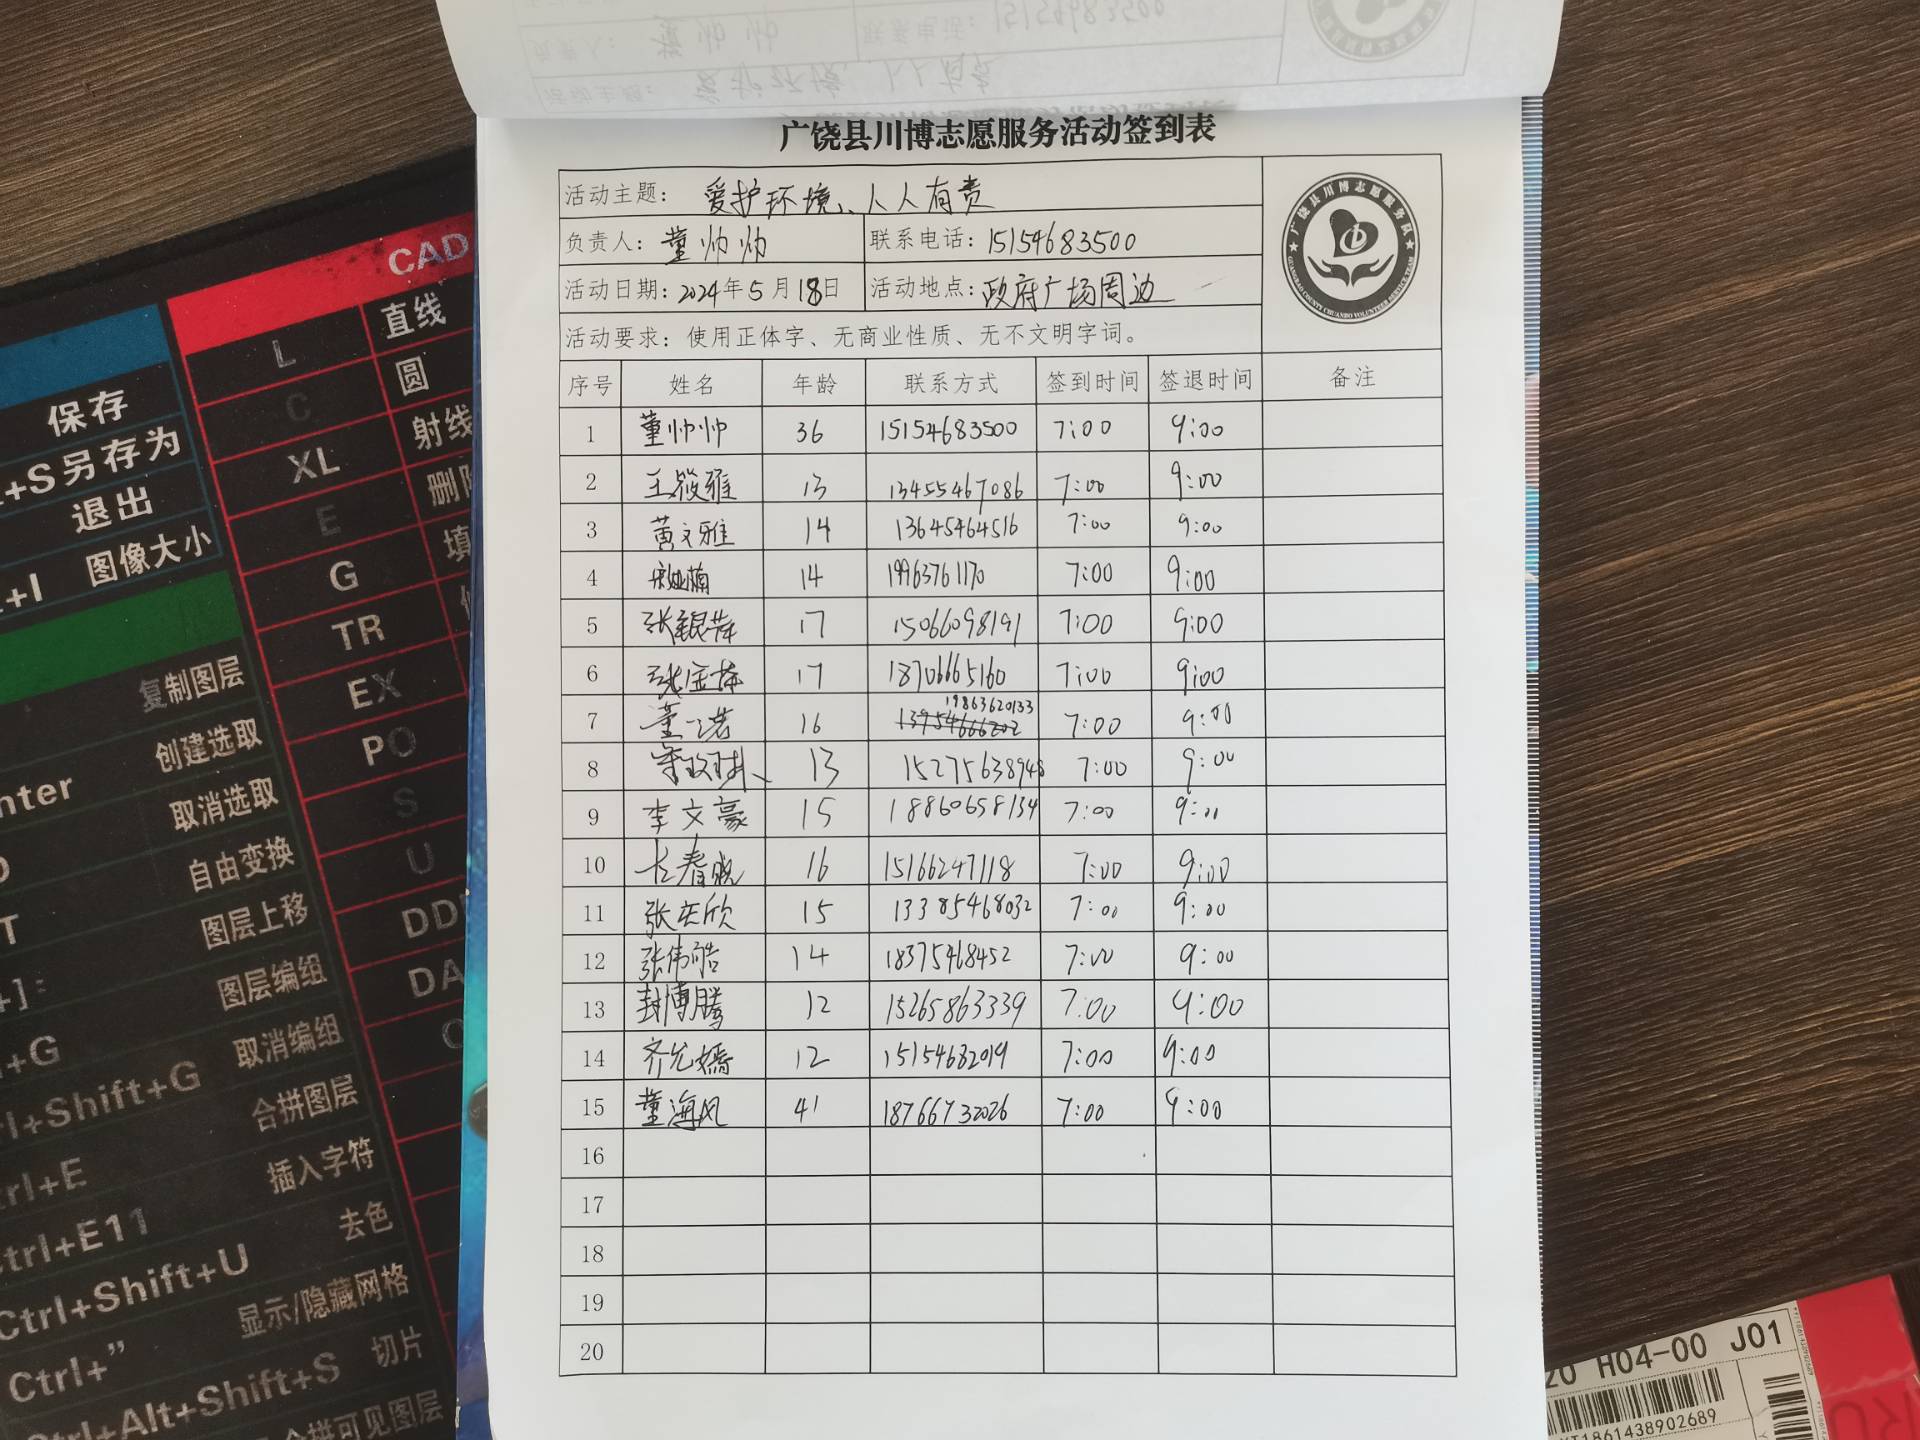 广饶县川博志愿服务活动签到表
活动主题: 爱护环境、人人有责
负责人: 董帅帅 联系电话: 15154683500
活动日期: 2024年5月18日 活动地点: 政府广场周边
活动要求: 使用正体字、无商业性质、无不文明字词。
广饶县川博志愿服务队
GUANGRAO COUNTY CHUANBO VOLUNTEER SERVICE TEAM
序号 姓名 年龄 联系方式 签到时间 签退时间 备注
1 董帅帅 36 15154683500 7:00 9:00
2 王筱雅 13 13455467086 7:00 9:00
3 黄文雅 14 13645464516 7:00 9:00
4 14 19963761170 7:00 9:00
5 张银萍 17 15066098191 7:00 9:00
6 张金萍 17 18706665160 7:00 9:00
7 董一诺 16 19863620133 7:00 9:00
8 13 15275638948 7:00 9:00
9 李文豪 15 18860658134 7:00 9:00
10 长春晓 16 15166247118 7:00 9:00
11 张奕欣 15 13385468032 7:00 9:00
12 张伟皓 14 18375468452 7:00 9:00
13 封博腾 12 15265863339 7:00 9:00
14 齐允嫣 12 15154682019 7:00 9:00
15 董海风 41 18766732026 7:00 9:00
16
17
18
19
20
CAD
L 直线
C 圆
XL 射线
E
G
TR
EX
PO
S
U
保存
+S另存为
退出
+I 图像大小
复制图层
创建选取
取消选取
自由变换
图层上移
图层编组
+G 取消编组
Shift+G 合拼图层
E 插入字符
Ctrl+E11 去色
Ctrl+Shift+U 显示/隐藏网格
Ctrl+” 切片
Ctrl+Alt+Shift+S 合拼可见图层
H04-00 J01
1861438902689